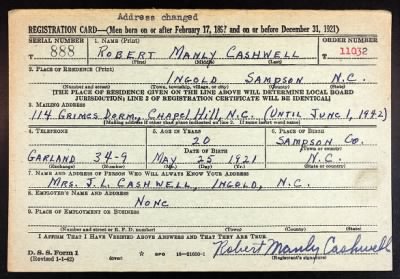 Address changed
REGISTRATION CARD—(Men born on or after February 17, 1897 and on or before December 31, 1921)
SERIAL NUMBER 1. NAME (Print) ORDER NUMBER
888 ROBERT MANLY CASHWELL 11032
(First) (Middle) (Last)
2. PLACE OF RESIDENCE (Print)
INGOLD SAMPSON N.C.
(Number and street) (Town, township, village, or city) (County) (State)
[THE PLACE OF RESIDENCE GIVEN ON THE LINE ABOVE WILL DETERMINE LOCAL BOARD
JURISDICTION; LINE 2 OF REGISTRATION CERTIFICATE WILL BE IDENTICAL]
3. MAILING ADDRESS
114 GRIMES DORM, CHAPEL HILL, N.C. (UNTIL JUNE 1, 1942)
[Mailing address if other than place indicated on line 2. If same insert word same]
4. TELEPHONE 5. AGE IN YEARS 6. PLACE OF BIRTH
20 SAMPSON CO.
DATE OF BIRTH (Town or county)
GARLAND 34-9 MAY 25 1921 N.C.
(Exchange) (Number) (Mo.) (Day) (Yr.) (State or country)
7. NAME AND ADDRESS OF PERSON WHO WILL ALWAYS KNOW YOUR ADDRESS
MRS. J. L. CASHWELL, INGOLD, N.C.
8. EMPLOYER'S NAME AND ADDRESS
NONE
9. PLACE OF EMPLOYMENT OR BUSINESS
(Number and street or R. F. D. number) (Town) (County) (State)
I AFFIRM THAT I HAVE VERIFIED ABOVE ANSWERS AND THAT THEY ARE TRUE.
D. S. S. Form 1 (over) GPO Robert Manly Cashwell
(Revised 1-1-42) (Registrant's signature)